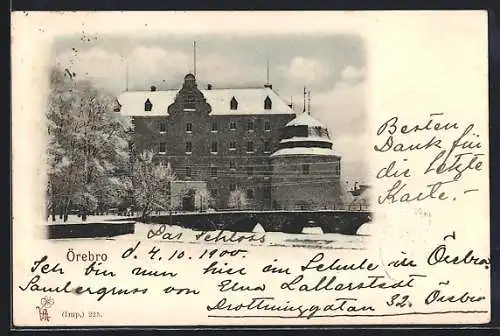 Örebro
Besten
Dank für
die letzte
Karte.-
Das Schloss
d. 4. 10. 1900.
Ich bin nun hier im Schule in Örebro.
Gruss von Elna Lallerstedt
Drottninggatan 32. Örebro
(Imp.) 225.